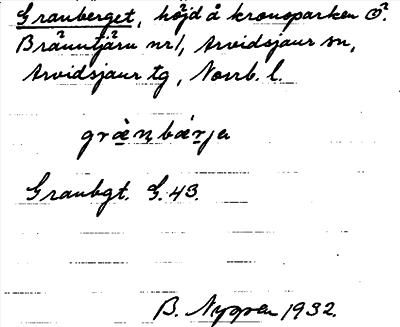 Granberget, höjd å kronoparken Ö.
Bränntjärn nr 1, Arvidsjaur sn,
Arvidsjaur tg, Norrb. l.
Granbgt. G. 43.
B. Nygren 1932.